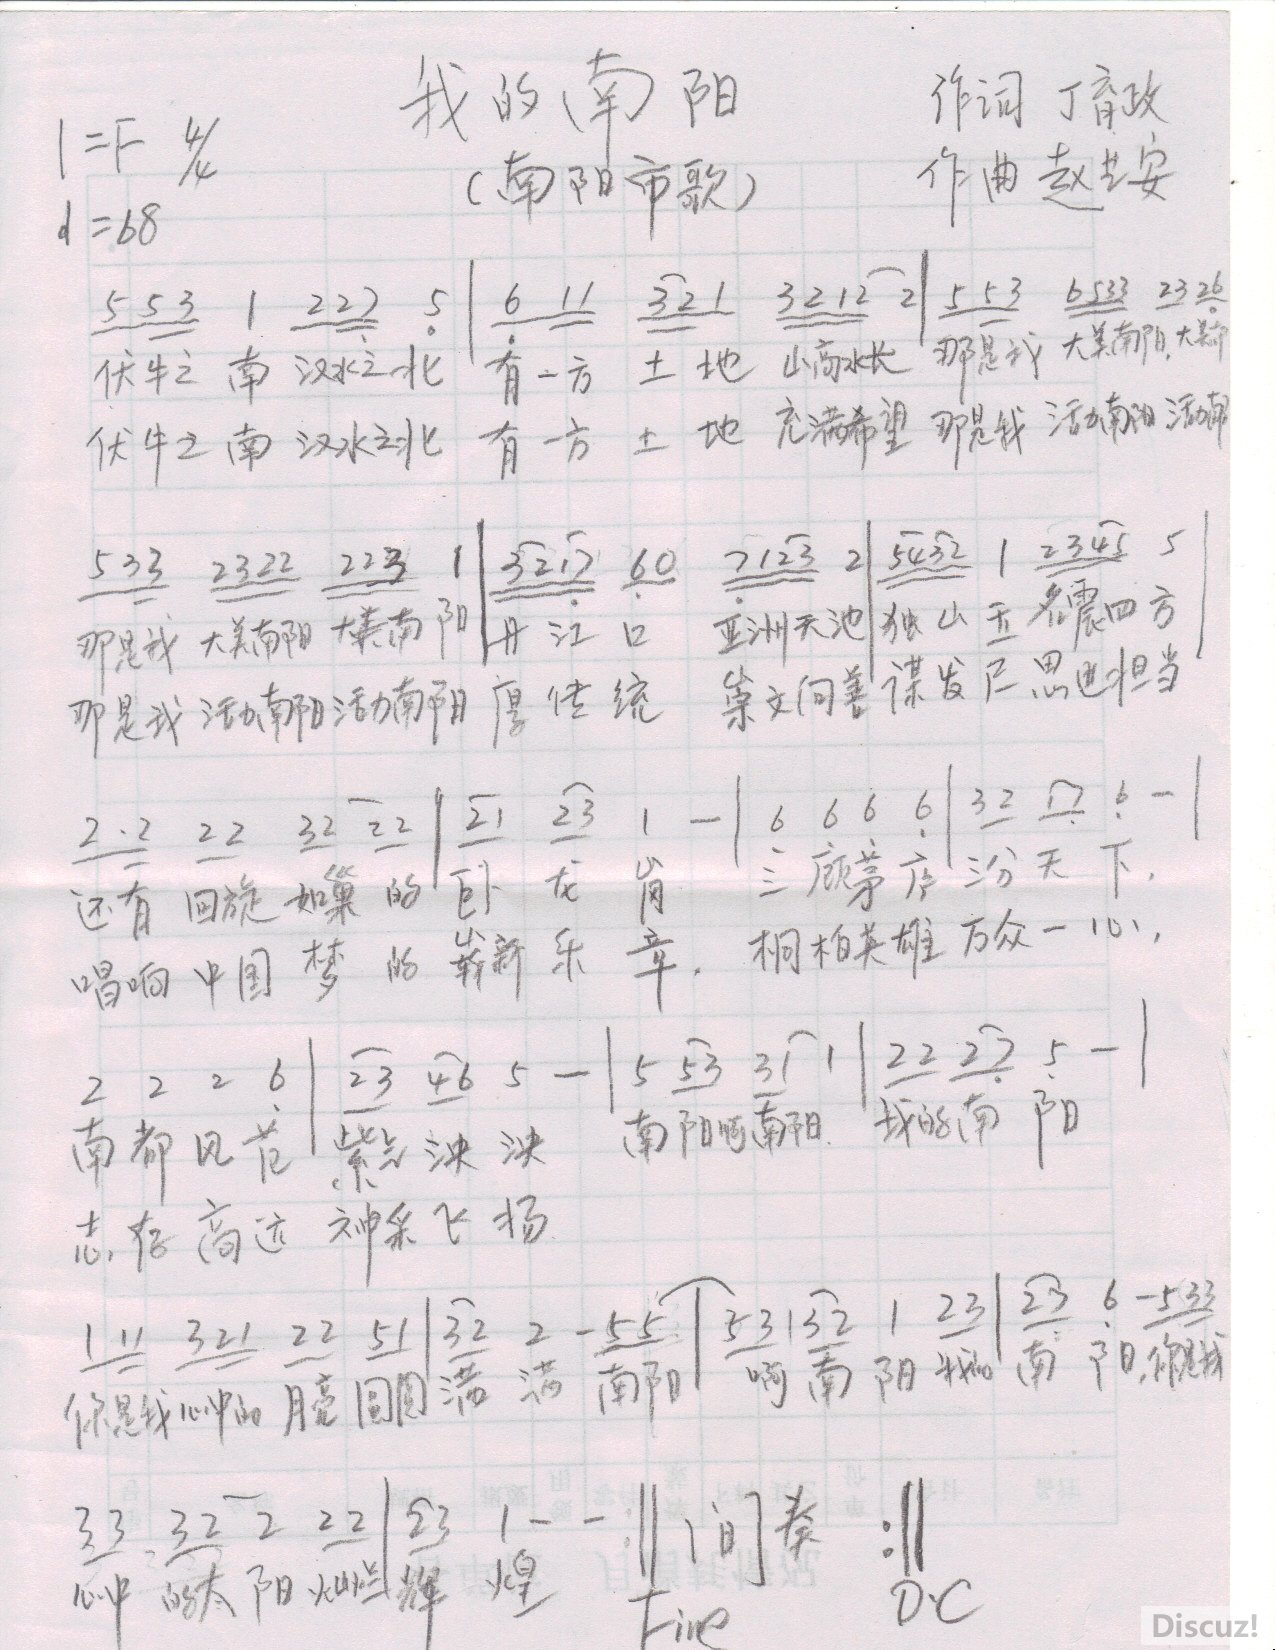 我的南阳 作词 丁育政
1=F 4/4
(南阳市歌) 作曲 赵书安
♩=68
553 1 227 5 | 6 11 321 3212 2 | 553 6533 2326
伏牛之南 汉水之北 有一方土地 山高水长 那是我 大美南阳,大美南
伏牛之南 汉水之北 有一方土地 充满希望 那是我 活力南阳 活力南
533 2322 223 1 | 3217 60 7123 2 | 5432 1 2345 5 |
那是我 大美南阳 大美南阳 丹江口 亚洲天池 独山玉 名震四方
那是我 活力南阳 活力南阳 厚传统 崇文向善 谋发展 思进担当
2·2 22 32 22 | 21 23 1 - | 6 6 6 6 | 32 17 6 - |
还有回旋如巢的卧龙岗 三顾茅庐 三分天下,
唱响中国梦的崭新乐章. 桐柏英雄 万众一心,
2 2 2 6 | 23 46 5 - | 5 53 31 1 | 22 27 5 - |
南都风范 紫气泱泱 南阳啊南阳 我的南阳
志存高远 神采飞扬
1 11 321 22 51 | 32 2 - 55 | 53132 1 23 | 23 6 - 533
你是我心中的月亮圆圆满满 南阳啊南阳我的南阳,你是我
33 32 2 22 | 23 1 - - :‖ 间奏 :‖
心中的太阳灿烂辉煌 Fine D.C
Discuz!